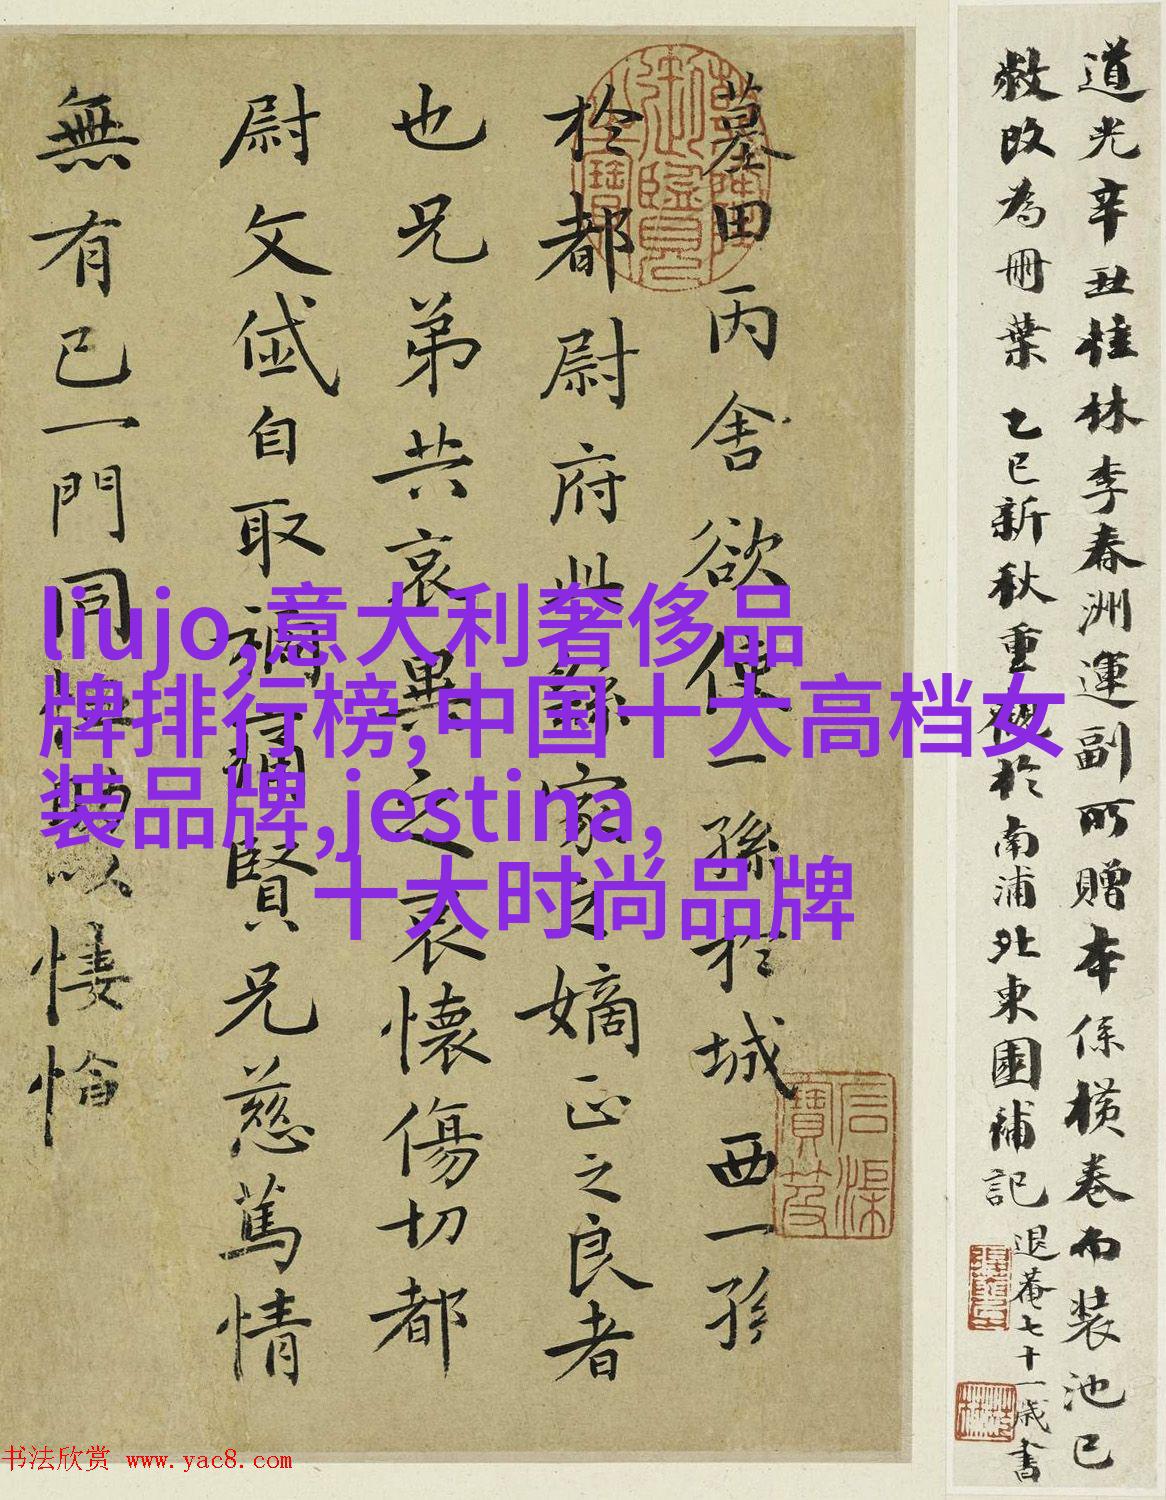 道光辛丑桂林李春洲運副所贈本係横卷而装池已
敝改為冊葉乙巳新秋重裱於南浦北東園補記
退菴七十一歲書
墓田丙舍欲使一孫於城西一孫
於都尉府此繇家之嫡正之良者
也兄弟共哀異之哀懷傷切都
尉文岱自取禍痛賢兄慈篤情
無有已一門同恤以悽愴
liujo,意大利奢侈品
牌排行榜,中国十大高档女
装品牌,jestina,
十大时尚品牌
书法欣赏 www.yac8.com